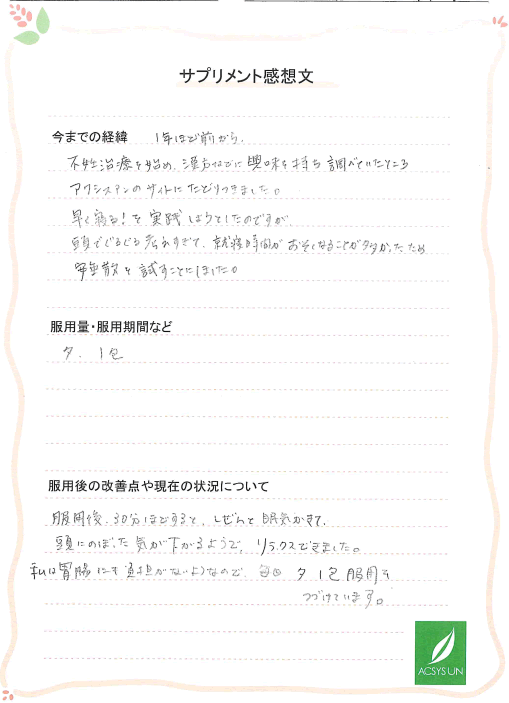 サプリメント感想文
今までの経緯 1年ほど前から、
不妊治療を始め、漢方などに興味を持ち調べていたところ
アクシスアンのサイトにたどりつきました。
早く寝る!を実践しようとしたのですが、
頭でぐるぐる考えすぎて、就寝時間がおそくなることが多かったため
散を試すことにしました。
服用量・服用期間など
夕、1包
服用後の改善点や現在の状況について
服用後、30分ほどすると、しぜんと眠気がきて、
頭にのぼった気が下がるようで、リラックスできました。
私は胃腸にも負担がないようなので、毎日 夕1包服用を
つづけています。
ACSYS UN